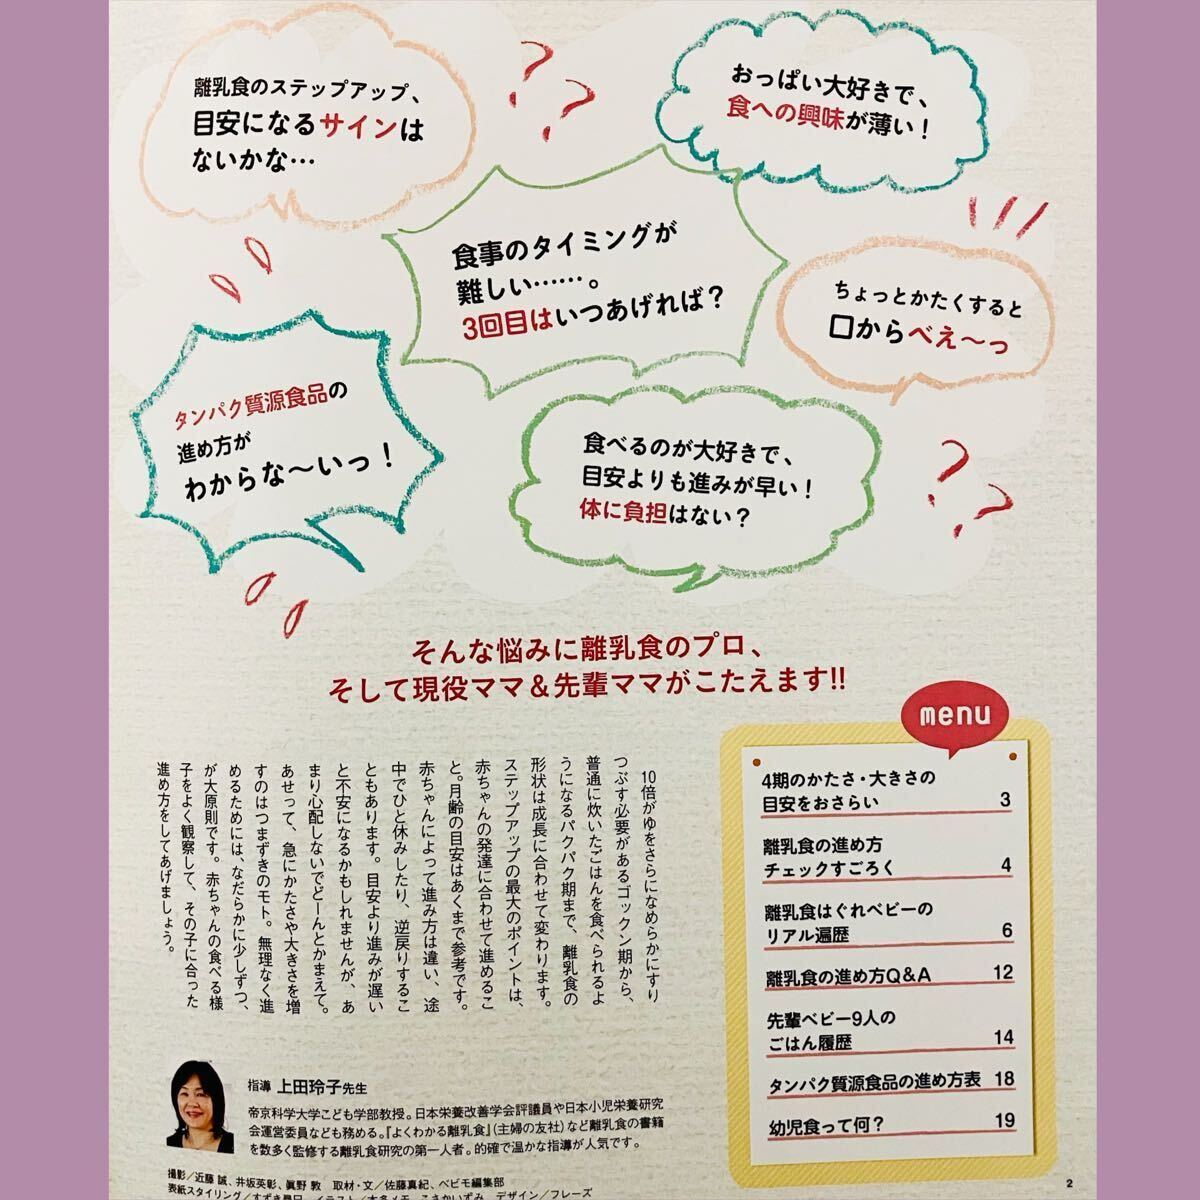 離乳食のステップアップ、
目安になるサインは
ないかな…
おっぱい大好きで、
食への興味が薄い！
食事のタイミングが
難しい……。
3回目はいつあげれば？
ちょっとかたくすると
口からべえ〜っ
タンパク質源食品の
進め方が
わからな〜いっ！
食べるのが大好きで、
目安よりも進みが早い！
体に負担はない？
そんな悩みに離乳食のプロ、
そして現役ママ＆先輩ママがこたえます!!
10倍がゆをさらになめらかにすり
つぶす必要があるゴックン期から、
普通に炊いたごはんを食べられるよ
うになるパクパク期まで、離乳食の
形状は成長に合わせて変わります。
ステップアップの最大のポイントは、
赤ちゃんの発達に合わせて進めるこ
と。月齢の目安はあくまで参考です。
赤ちゃんによって進み方は違い、途
中でひと休みしたり、逆戻りするこ
ともあります。目安より進みが遅い
と不安になるかもしれませんが、あ
まり心配しないでどーんとかまえて。
あせって、急にかたさや大きさを増
すのはつまずきのモト。無理なく進
めるためには、なだらかに少しずつ、
が大原則です。赤ちゃんの食べる様
子をよく観察して、その子に合った
進め方をしてあげましょう。
menu
4期のかたさ・大きさの
目安をおさらい 3
離乳食の進め方
チェックすごろく 4
離乳食はぐれベビーの
リアル遍歴 6
離乳食の進め方Q＆A 12
先輩ベビー9人の
ごはん履歴 14
タンパク質源食品の進め方表 18
幼児食って何？ 19
指導 上田玲子先生
帝京科学大学こども学部教授。日本栄養改善学会評議員や日本小児栄養研究
会運営委員なども務める。『よくわかる離乳食』(主婦の友社)など離乳食の書籍
を数多く監修する離乳食研究の第一人者。的確で温かな指導が人気です。
撮影／近藤 誠、井坂英彰、眞野 敦　取材・文／佐藤真紀、ベビモ編集部
表紙スタイリング／すずき尋巳　イラスト／本多メモ、こさかいずみ　デザイン／フレーズ
2